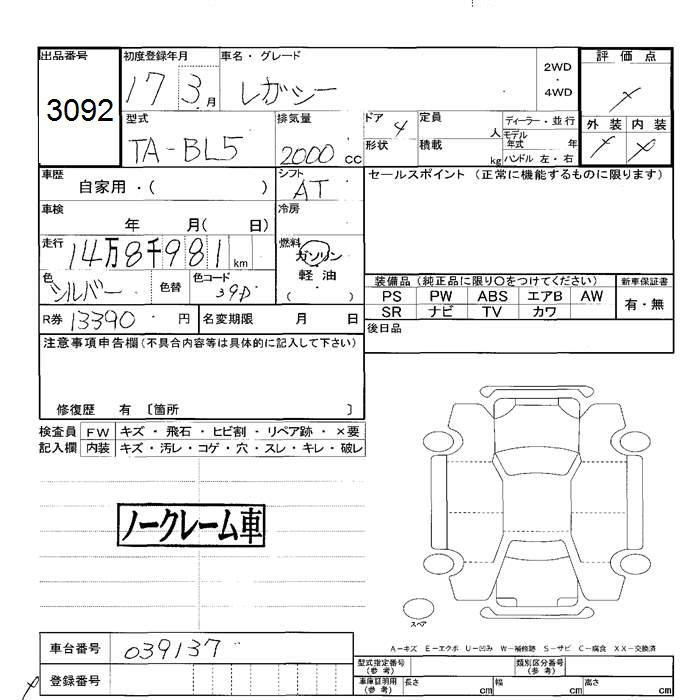 出品番号 初度登録年月 車名・グレード 評価点
3092 17 3月 レガシー 2WD
・
4WD
外装 内装
型式 排気量 ドア 4 定員 人 ディーラー・並行
TA-BL5 2000cc 形状 積載 kg モデル年式 年
ハンドル 左・右
車歴 自家用・( ) シフト AT セールスポイント (正常に機能するものに限ります)
車検 年 月( 日) 冷房
走行 14万8千981km 燃料 ガソリン
軽油
( )
色 シルバー 色替 色コード 39D
装備品 (純正品に限り○をつけてください) 新車保証書
PS PW ABS エアB AW 有・無
SR ナビ TV カワ
R券 13390 円 名変期限 月 日 後日品
注意事項申告欄 (不具合内容等は具体的に記入して下さい)
修復歴 有 〔箇所 〕
検査員 FW キズ・飛石・ヒビ割・リペア跡・×要
記入欄 内装 キズ・汚レ・コゲ・穴・スレ・キレ・破レ
ノークレーム車
スペア
A-キズ E-エクボ U-凹み W-補修跡 S-サビ C-腐食 XX-交換済
車台番号 039137
登録番号
型式指定番号 (参考) 類別区分番号 (参考)
車庫証明用 (参考) 長さ cm 幅 cm 高さ cm